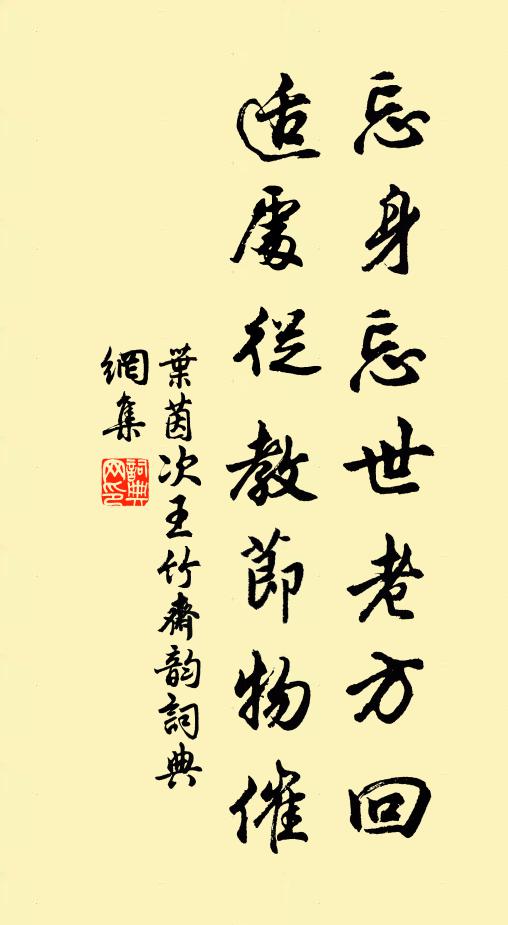 忘身忘世老方回
适處從教節物催
葉茵次王竹齋韵詞典
網集
詞典網印